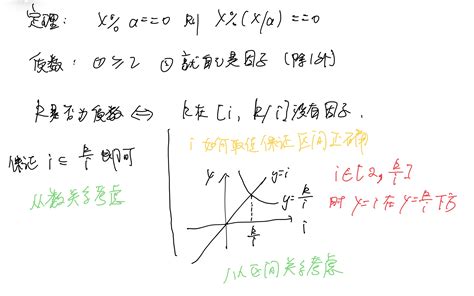 定理: x % a == 0 则 x % (x/a) == 0
质数: ① ≥ 2 ② 就自己是因子 (除1外)
k是否为质数 ⇔ k在 [i, k/i] 没有因子.
i 如何取值保证区间正确
保证 i ≤ k/i 即可
从数关系考虑
y
y=i
y=k/i
k/i
i
i∈[2, k/i]
时 y=i 在 y=k/i 下方
从区间关系考虑